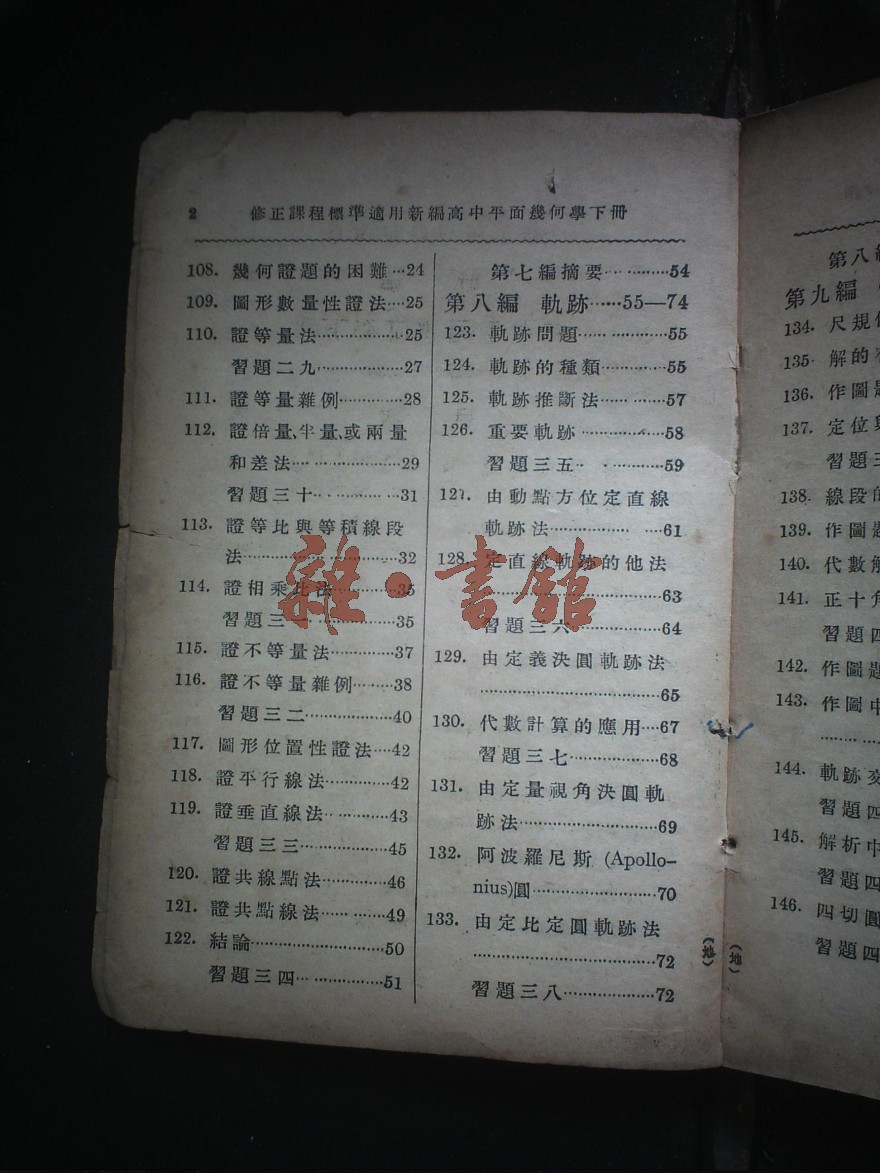 2 修正課程標準適用新編高中平面幾何學下冊
108. 幾何證題的困難…24
109. 圖形數量性證法…25
110. 證等量法………………25
習題二九………………27
111. 證等量雜例…………28
112. 證倍量、半量、或兩量
和差法……………………29
習題三十………………31
113. 證等比與等積線段
法…………………………32
114. 證相乘比法…………35
習題三一………………35
115. 證不等量法…………37
116. 證不等量雜例………38
習題三二………………40
117. 圖形位置性證法…42
118. 證平行線法…………42
119. 證垂直線法…………43
習題三三………………45
120. 證共線點法…………46
121. 證共點線法…………49
122. 結論……………………50
習題三四………………51
第七編摘要……………54
第八編 軌跡……55—74
123. 軌跡問題……………55
124. 軌跡的種類…………55
125. 軌跡推斷法…………57
126. 重要軌跡……………58
習題三五………………59
127. 由動點方位定直線
軌跡法…………………61
128. 定直線軌跡的他法
……………………………63
習題三六………………64
129. 由定義決圓軌跡法
……………………………65
130. 代數計算的應用…67
習題三七………………68
131. 由定量視角決圓軌
跡法……………………69
132. 阿波羅尼斯 (Apollo-
nius)圓…………………70
133. 由定比定圓軌跡法
……………………………72
習題三八………………72
(地)
(地)
第八編
第九編
134. 尺規
135. 解的
136. 作圖題
137. 定位與
習題三
138. 線段的
139. 作圖題
140. 代數解
141. 正十角
習題四
142. 作圖題
143. 作圖中
………
144. 軌跡交
習題四
145. 解析中
習題四
146. 四切圓
習題四
雜·書館